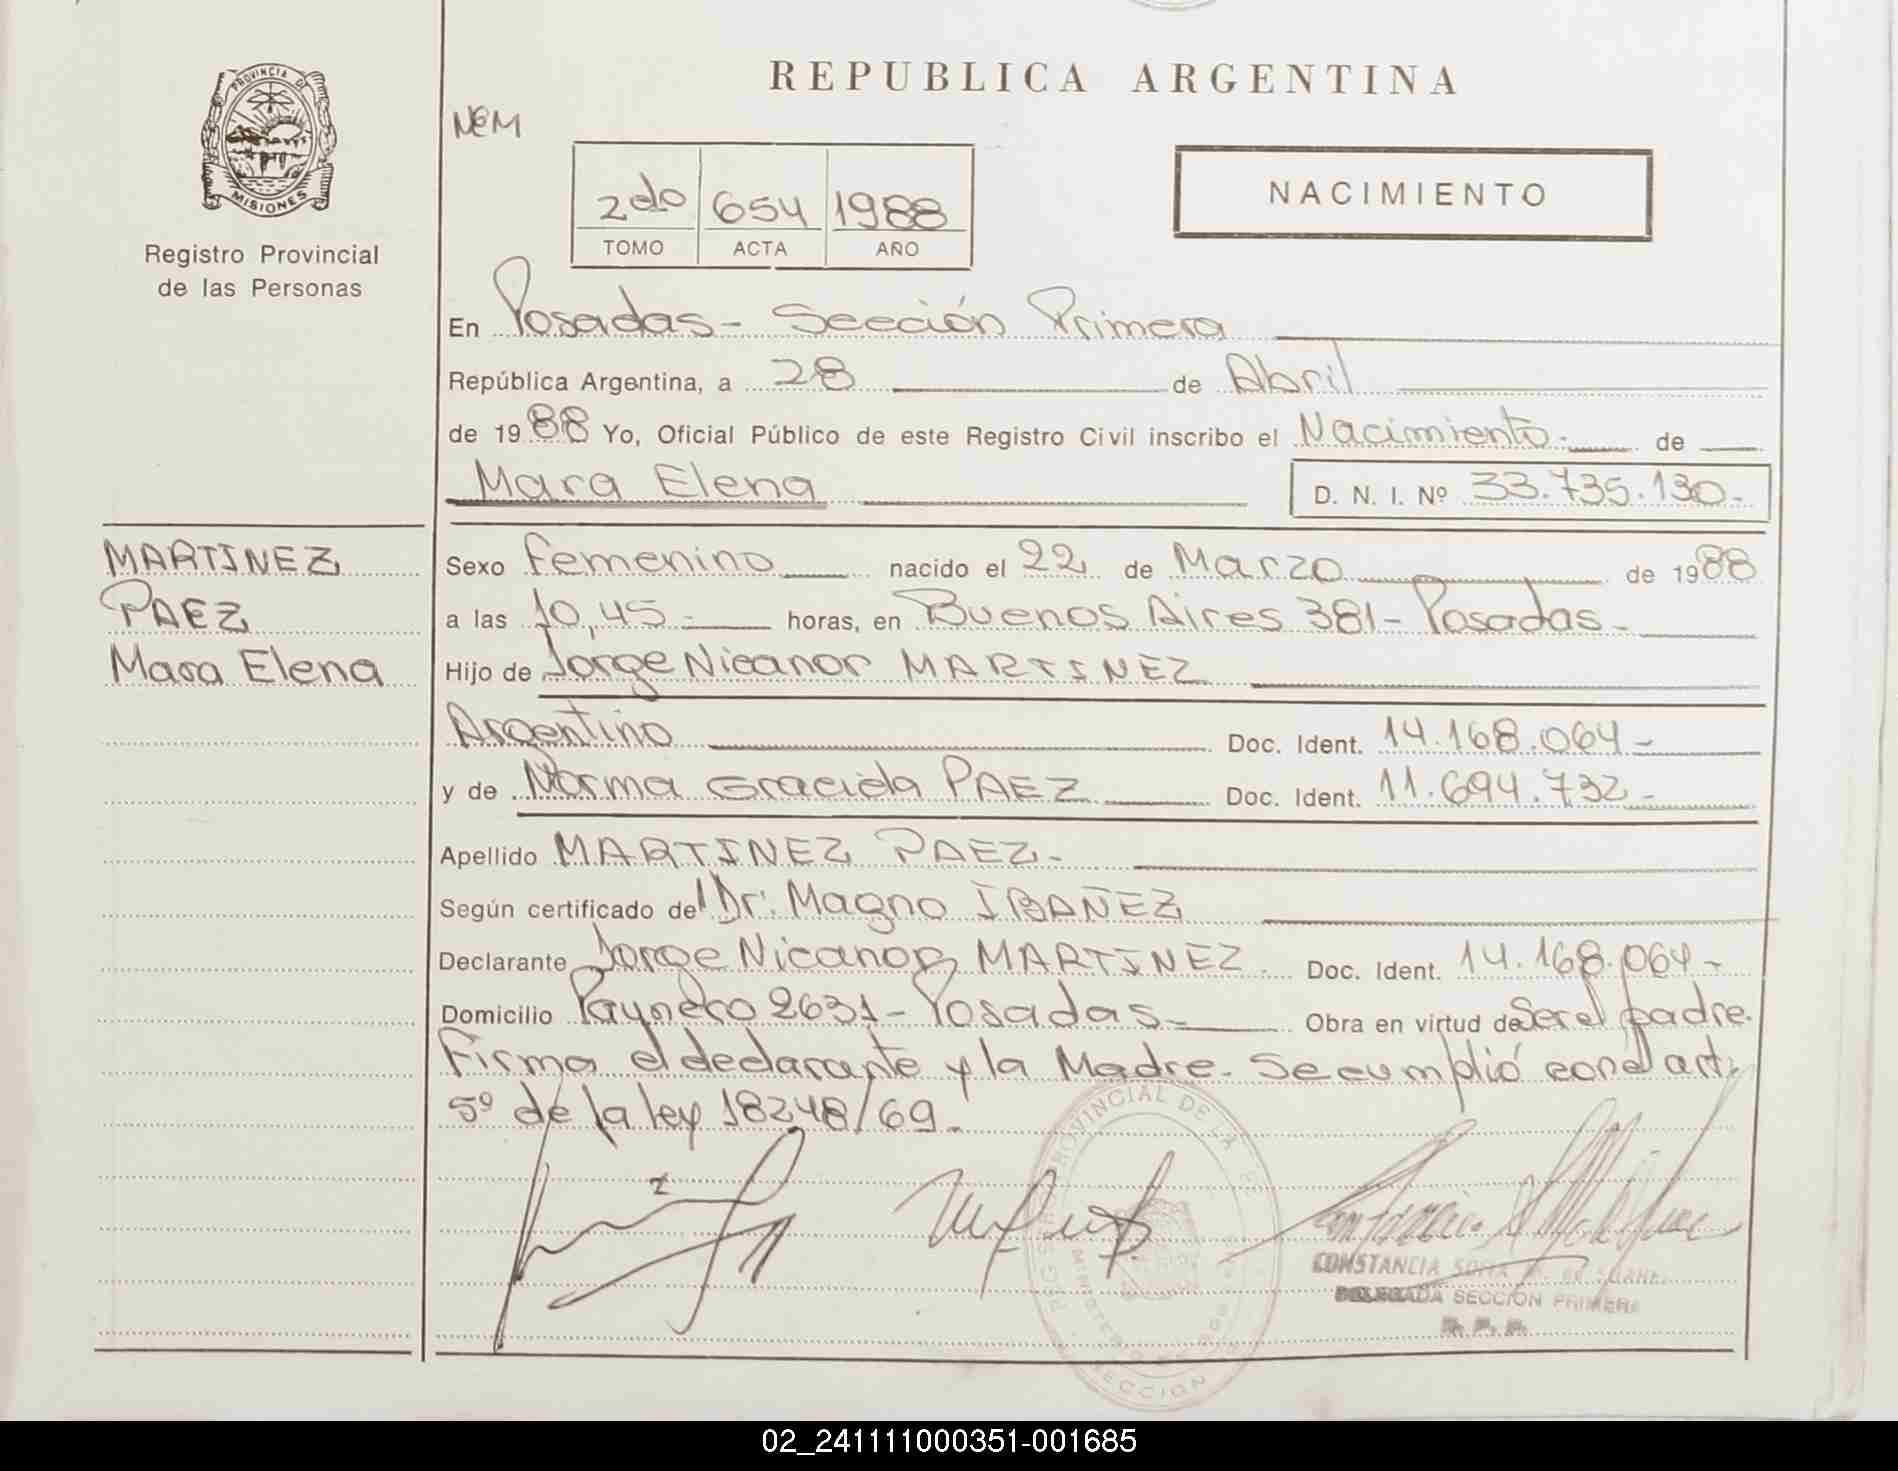 REPUBLICA ARGENTINA
PROVINCIA D
MISIONES
Registro Provincial
de las Personas
NEM
2do 654 1988
TOMO ACTA AÑO
NACIMIENTO
En Posadas - Sección Primera
República Argentina, a 28 de Abril
de 1988 Yo, Oficial Público de este Registro Civil inscribo el Nacimiento.- de
Mara Elena D. N. I. Nº 33.735.130.-
MARTINEZ
PAEZ
Mara Elena
Sexo Femenino nacido el 22 de Marzo de 1988
a las 10,45.- horas, en Buenos Aires 381 - Posadas -
Hijo de Jorge Nicanor MARTINEZ
Argentino Doc. Ident. 14.168.064 -
y de Norma Graciela PAEZ Doc. Ident. 11.694.732 -
Apellido MARTINEZ PAEZ -
Según certificado del Dr: Magno IBAÑEZ
Declarante Jorge Nicanor MARTINEZ Doc. Ident. 14.168.064 -
Domicilio 2631 - Posadas - Obra en virtud de Ser el padre.
Firma el declarante y la Madre. Se cumplió con el art.
5º de la ley 18248/69.
PROVINCIAL DE LA
SECCION
CONSTANCIA
DELEGADA SECCION PRIMERA
R. P. P.
02_241111000351-001685